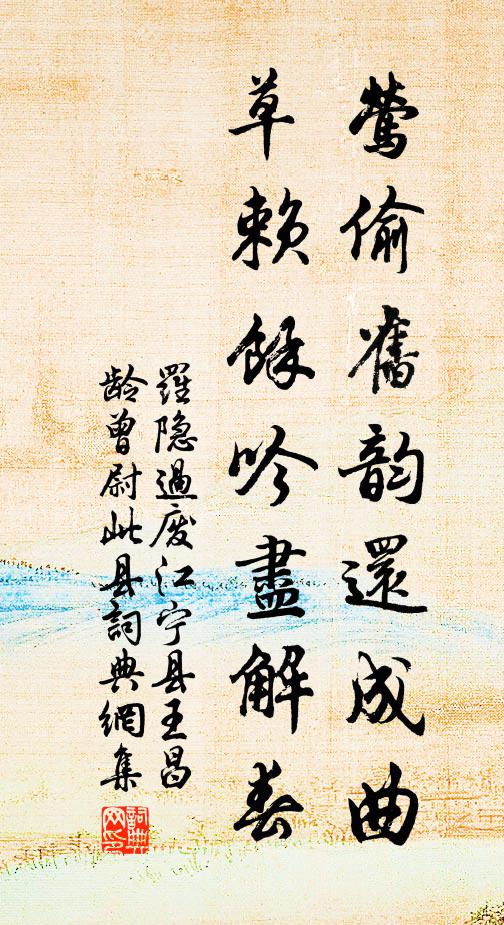 莺偷舊韵還成曲
草賴餘吟盡解春
羅隐過废江宁县王昌
龄曾尉此县詞典網集